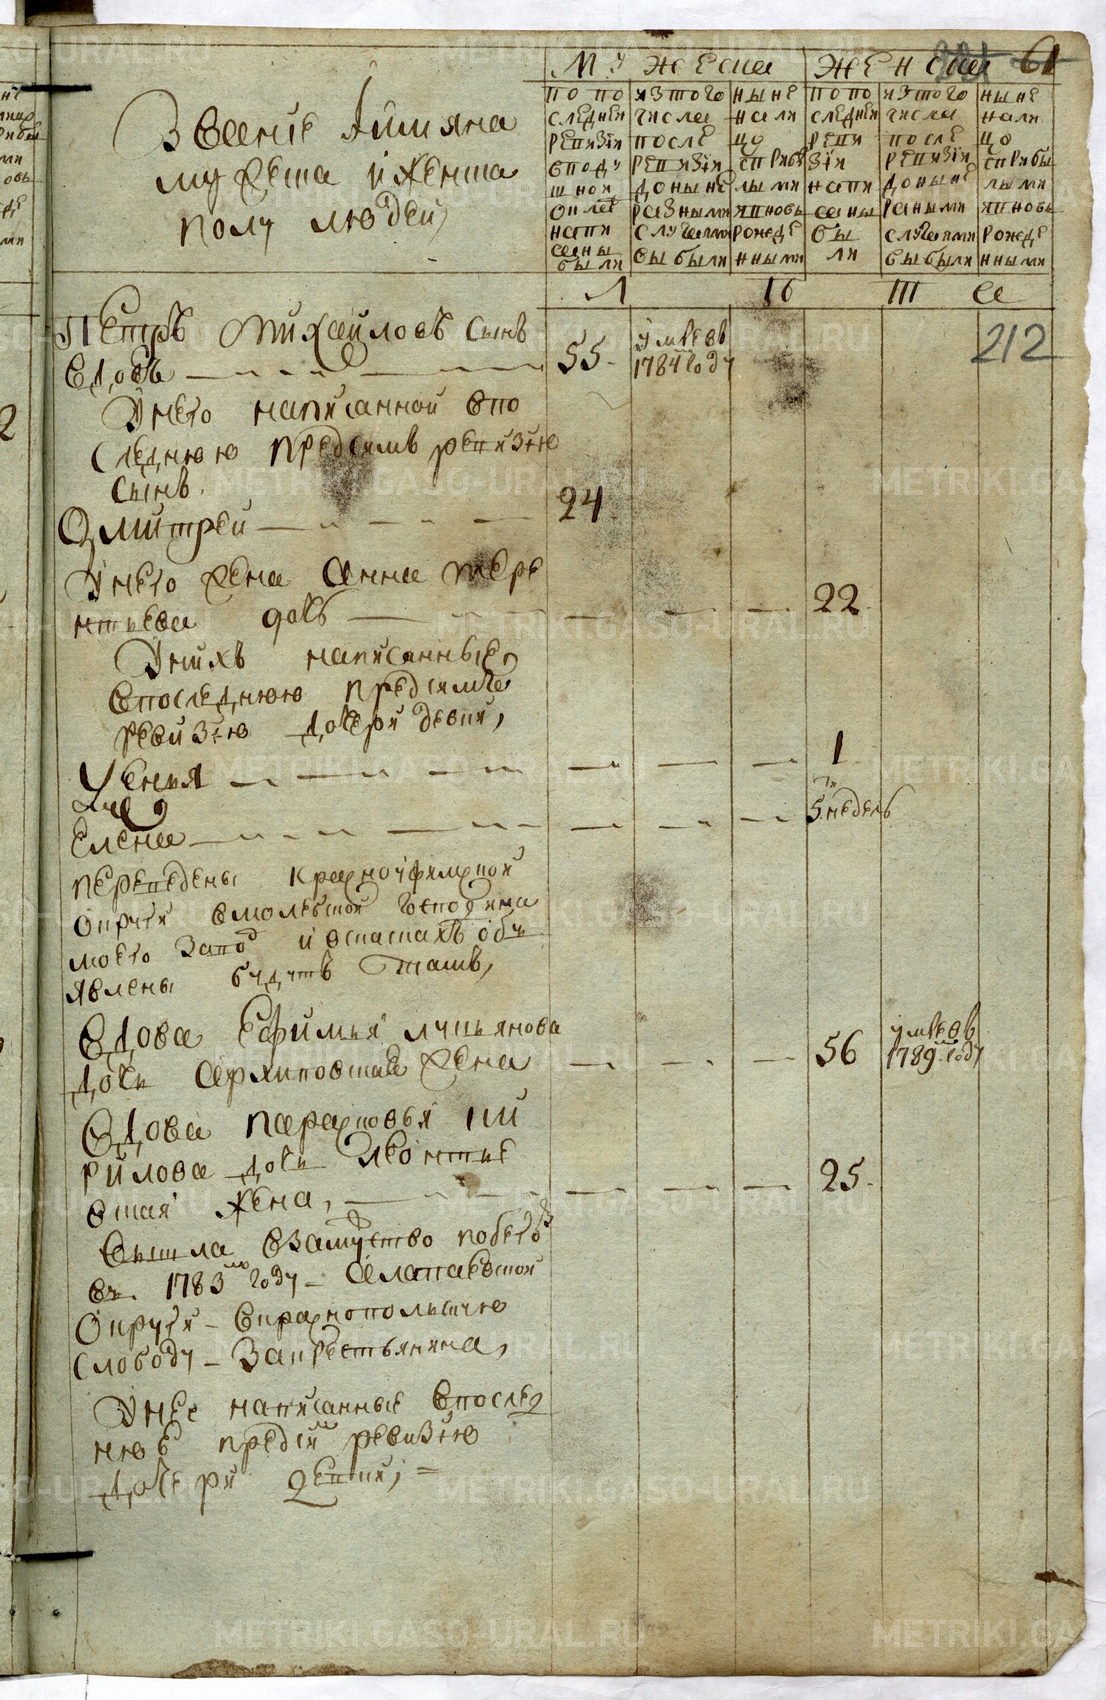 Званiе и имяна
мужеска и женска
полу людей
Мужески
Женски
61
по по
следней
ревизiи
в поду
шной
оклад
напи
саны
были
из того
числа
после
ревизiи
до ныне
разными
случаями
выбыли
ныне
нали
цо
с прибы
лыми
и вновь
рожде
нными
по по
следней
реви
зiи
напи
саны
бы
ли
из того
числа
после
ревизiи
до ныне
разными
случаями
выбыли
ныне
нали
цо
с прибы
лыми
и вновь
рожде
нными
л
212
Петръ Михайловъ сынъ
вдовъ
55
умре въ
1784 году
У него написанной в по
следнюю пред симъ ревизiю
сынъ
Дмитрей
24
У него жена Анна тере
нтьева дочь
22
У нихъ написанные
в последнюю пред симъ
ревизiю дочери девки,
Ксенья
1
Елена
5 недель
переведены Красноуфимской
округи в молебской господина
моего завод и в скаскахъ объ
явлены будутъ тамъ,
Вдова Ефимья лукьянова
дочь Архиповская жена
56
умре въ
1789 году
Вдова парасковья ки
рилова дочь Леонтье
вская жена,
25
Вышла в замужство
в 1783 году Алапаевской
округи в краснопольскую
слободу за крестьянина,
У нее написанные в послед
нюю пред сим ревизiю
дочери девки,
METRIKI.GASO-URAL.RU